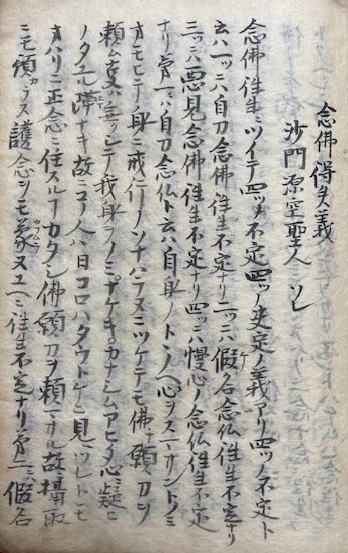 念佛得失義
沙門源空聖人
念佛往生ニツイテ四ツノ不定四ツノ決定ノ義アリ四ツノ不定ト
云ハ一ニハ自力念佛往生不定ナリ二ツニハ假名念仏往生不定ナリ
三ツニハ惡見念佛往生不定ナリ四ツニハ慢心ノ念仏往生不定
ナリ第一ニハ自力念仏ト云ハ自身ノトノ心ヲスマサントノミ
オモヒテ身ニ戒行ノソナハラヌニツケテモ佛ノ願力ヲ
頼ム支ハ無シテ我身ラノミナケキカナシムアヒタ心ニ疑ヒ
ノタエル隙ナキ故ニコノ人ハ日コロハタウトケニ見ツレトモ
オハリニ正念ニ住スルコトカタシ佛願力ヲ頼マサル故攝取
ニモ預カラス護念ヲモ蒙又ユヘニ往生不定ナリ第二ニ假名